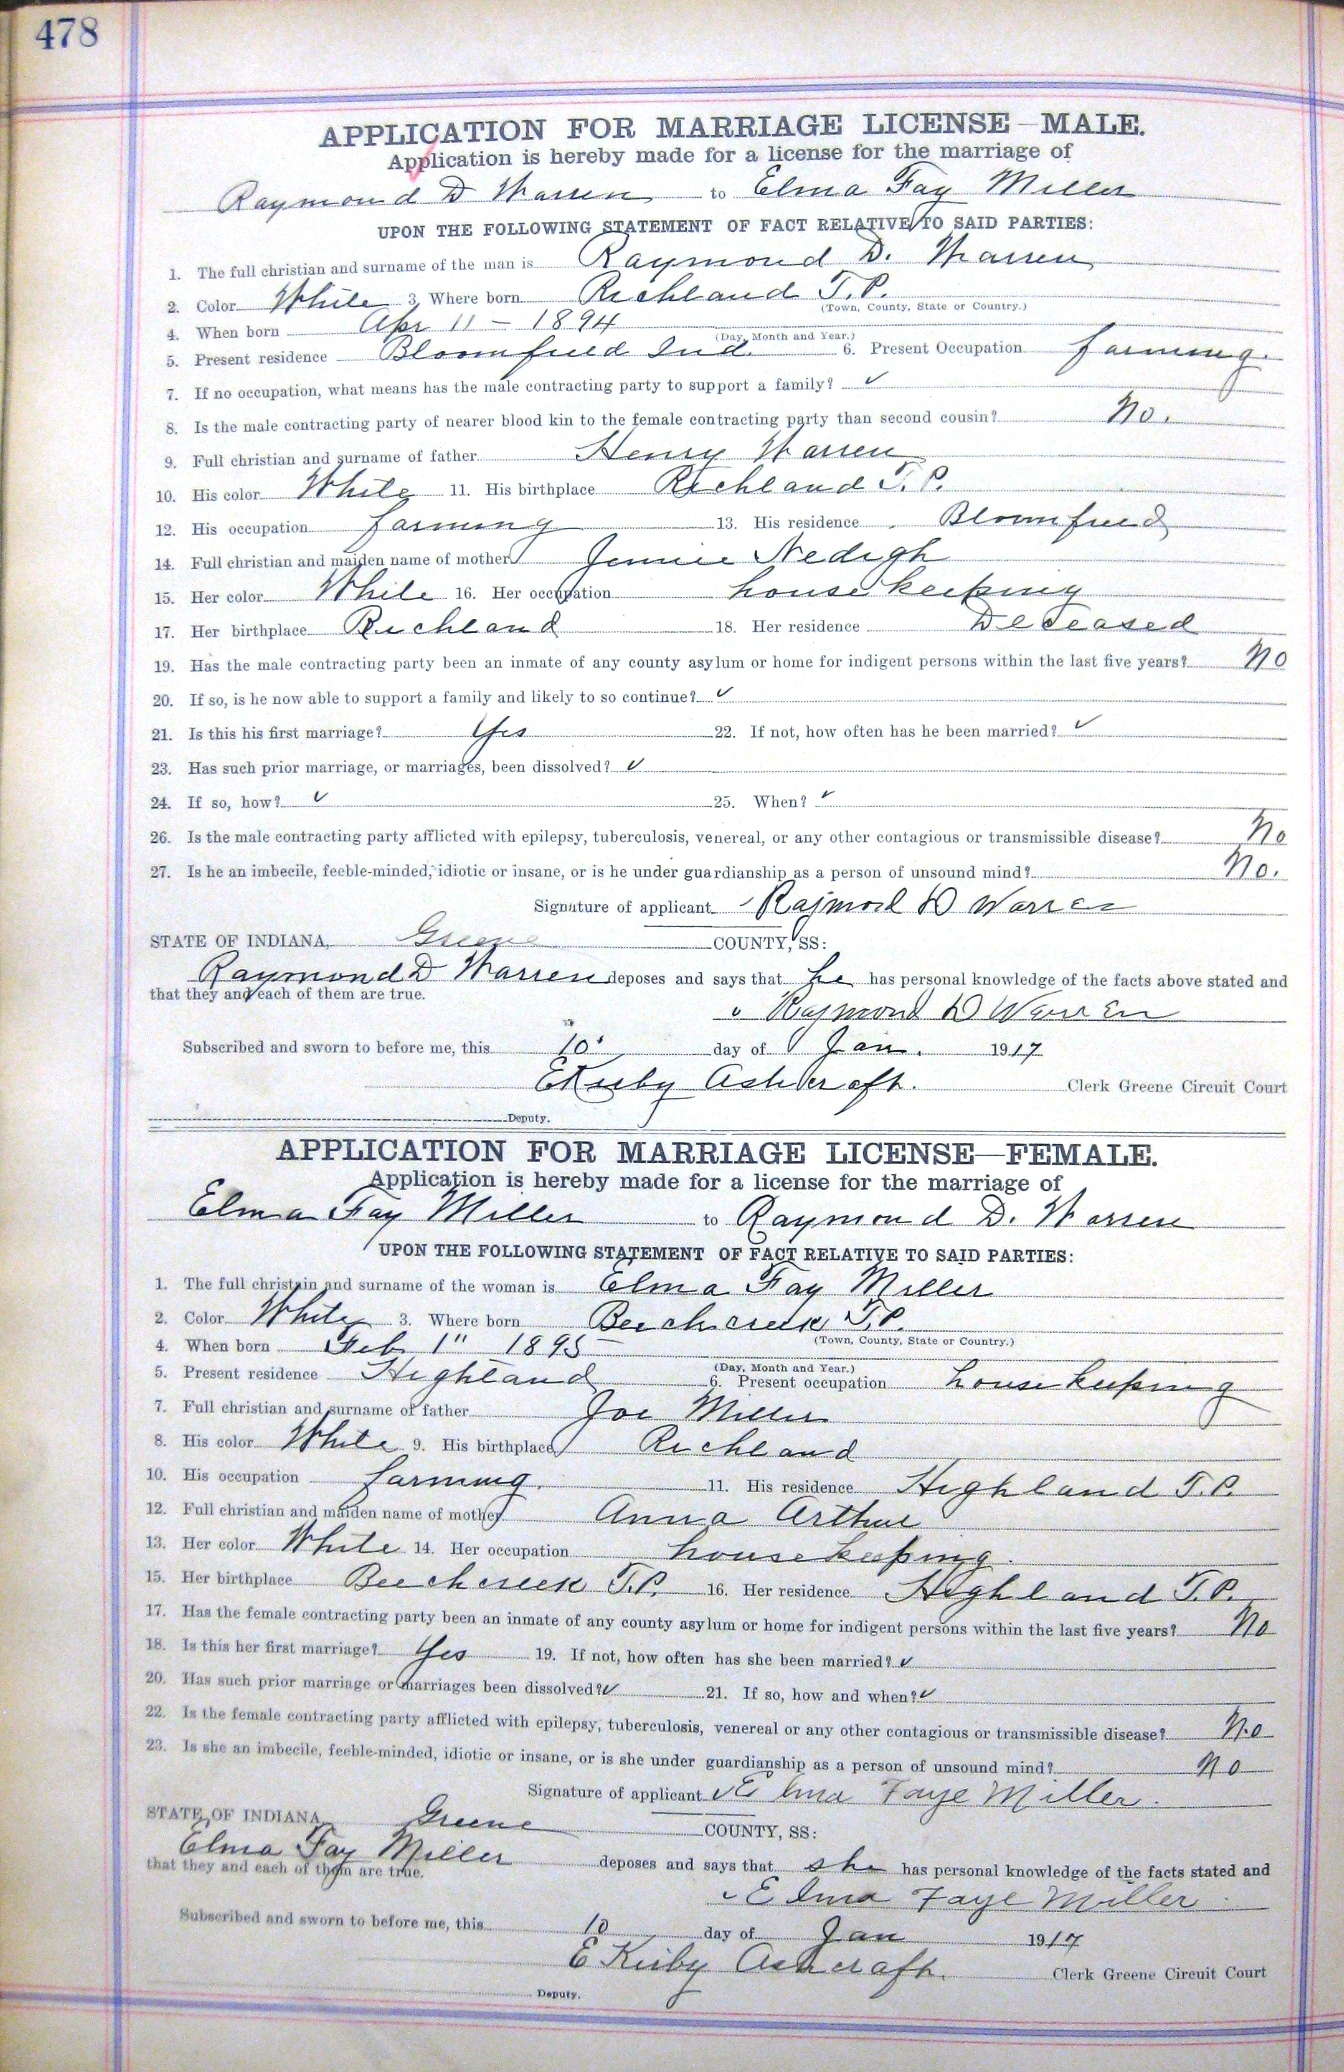 478
APPLICATION FOR MARRIAGE LICENSE—MALE.
Application is hereby made for a license for the marriage of
Raymond D Warren to Elma Fay Miller
UPON THE FOLLOWING STATEMENT OF FACT RELATIVE TO SAID PARTIES:
1. The full christian and surname of the man is Raymond D. Warren
2. Color White 3. Where born Richland T.P.
(Town, County, State or Country.)
4. When born Apr 11 - 1894
(Day, Month and Year.)
5. Present residence Bloomfield Ind. 6. Present Occupation farming.
7. If no occupation, what means has the male contracting party to support a family? ✓
8. Is the male contracting party of nearer blood kin to the female contracting party than second cousin? No.
9. Full christian and surname of father Henry Warren
10. His color White 11. His birthplace Richland T.P.
12. His occupation farming 13. His residence Bloomfield
14. Full christian and maiden name of mother Jennie Nedigh
15. Her color White 16. Her occupation housekeeping
17. Her birthplace Richland 18. Her residence Deceased
19. Has the male contracting party been an inmate of any county asylum or home for indigent persons within the last five years? No
20. If so, is he now able to support a family and likely to so continue? ✓
21. Is this his first marriage? Yes 22. If not, how often has he been married? ✓
23. Has such prior marriage, or marriages, been dissolved? ✓
24. If so, how? ✓ 25. When? ✓
26. Is the male contracting party afflicted with epilepsy, tuberculosis, venereal, or any other contagious or transmissible disease? No
27. Is he an imbecile, feeble-minded, idiotic or insane, or is he under guardianship as a person of unsound mind? No.
Signature of applicant Raymond D Warren
STATE OF INDIANA, Greene COUNTY, SS:
Raymond D Warren deposes and says that he has personal knowledge of the facts above stated and
that they and each of them are true.
Raymond D Warren
Subscribed and sworn to before me, this 10" day of Jan. 1917
E Kirby Ashcraft. Clerk Greene Circuit Court
Deputy.
APPLICATION FOR MARRIAGE LICENSE—FEMALE.
Application is hereby made for a license for the marriage of
Elma Fay Miller to Raymond D. Warren
UPON THE FOLLOWING STATEMENT OF FACT RELATIVE TO SAID PARTIES:
1. The full christain and surname of the woman is Elma Fay Miller
2. Color White 3. Where born Beechcreek T.P.
(Town, County, State or Country.)
4. When born Feb 1" 1895
(Day, Month and Year.)
5. Present residence Highland 6. Present occupation housekeeping
7. Full christian and surname of father Joe Miller
8. His color White 9. His birthplace Richland
10. His occupation farming. 11. His residence Highland T.P.
12. Full christian and maiden name of mother Anna Arthur
13. Her color White 14. Her occupation housekeeping.
15. Her birthplace Beechcreek T.P. 16. Her residence Highland T.P.
17. Has the female contracting party been an inmate of any county asylum or home for indigent persons within the last five years? No
18. Is this her first marriage? Yes 19. If not, how often has she been married? ✓
20. Has such prior marriage or marriages been dissolved? ✓ 21. If so, how and when? ✓
22. Is the female contracting party afflicted with epilepsy, tuberculosis, venereal or any other contagious or transmissible disease? No
23. Is she an imbecile, feeble-minded, idiotic or insane, or is she under guardianship as a person of unsound mind? No
Signature of applicant ✓ Elma Faye Miller.
STATE OF INDIANA, Greene COUNTY, SS:
Elma Fay Miller deposes and says that she has personal knowledge of the facts stated and
that they and each of them are true.
✓ Elma Faye Miller.
Subscribed and sworn to before me, this 10 day of Jan 1917
E Kirby Ashcraft. Clerk Greene Circuit Court
Deputy.